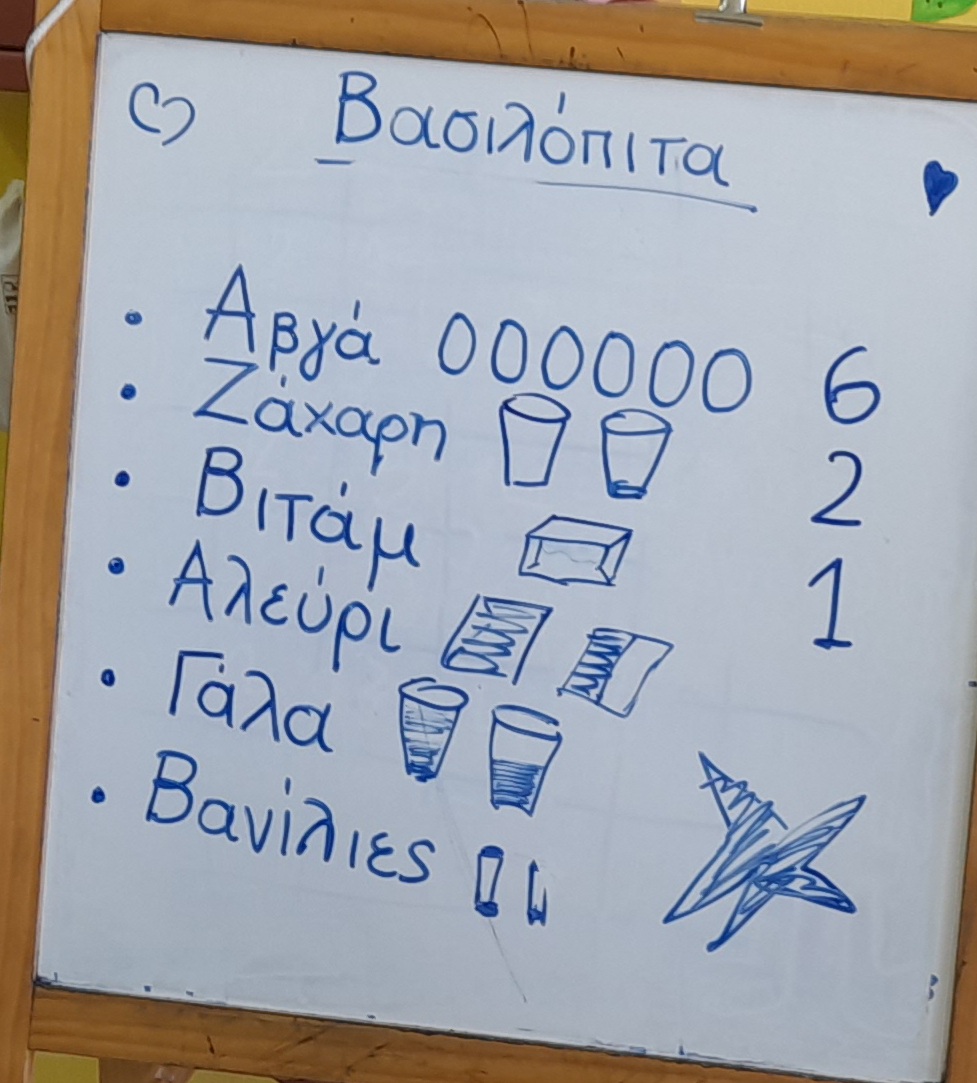 Βασιλόπιτα
• Αβγά 6
• Ζάχαρη 2
• Βιτάμ 1
• Αλεύρι
• Γάλα
• Βανίλιες